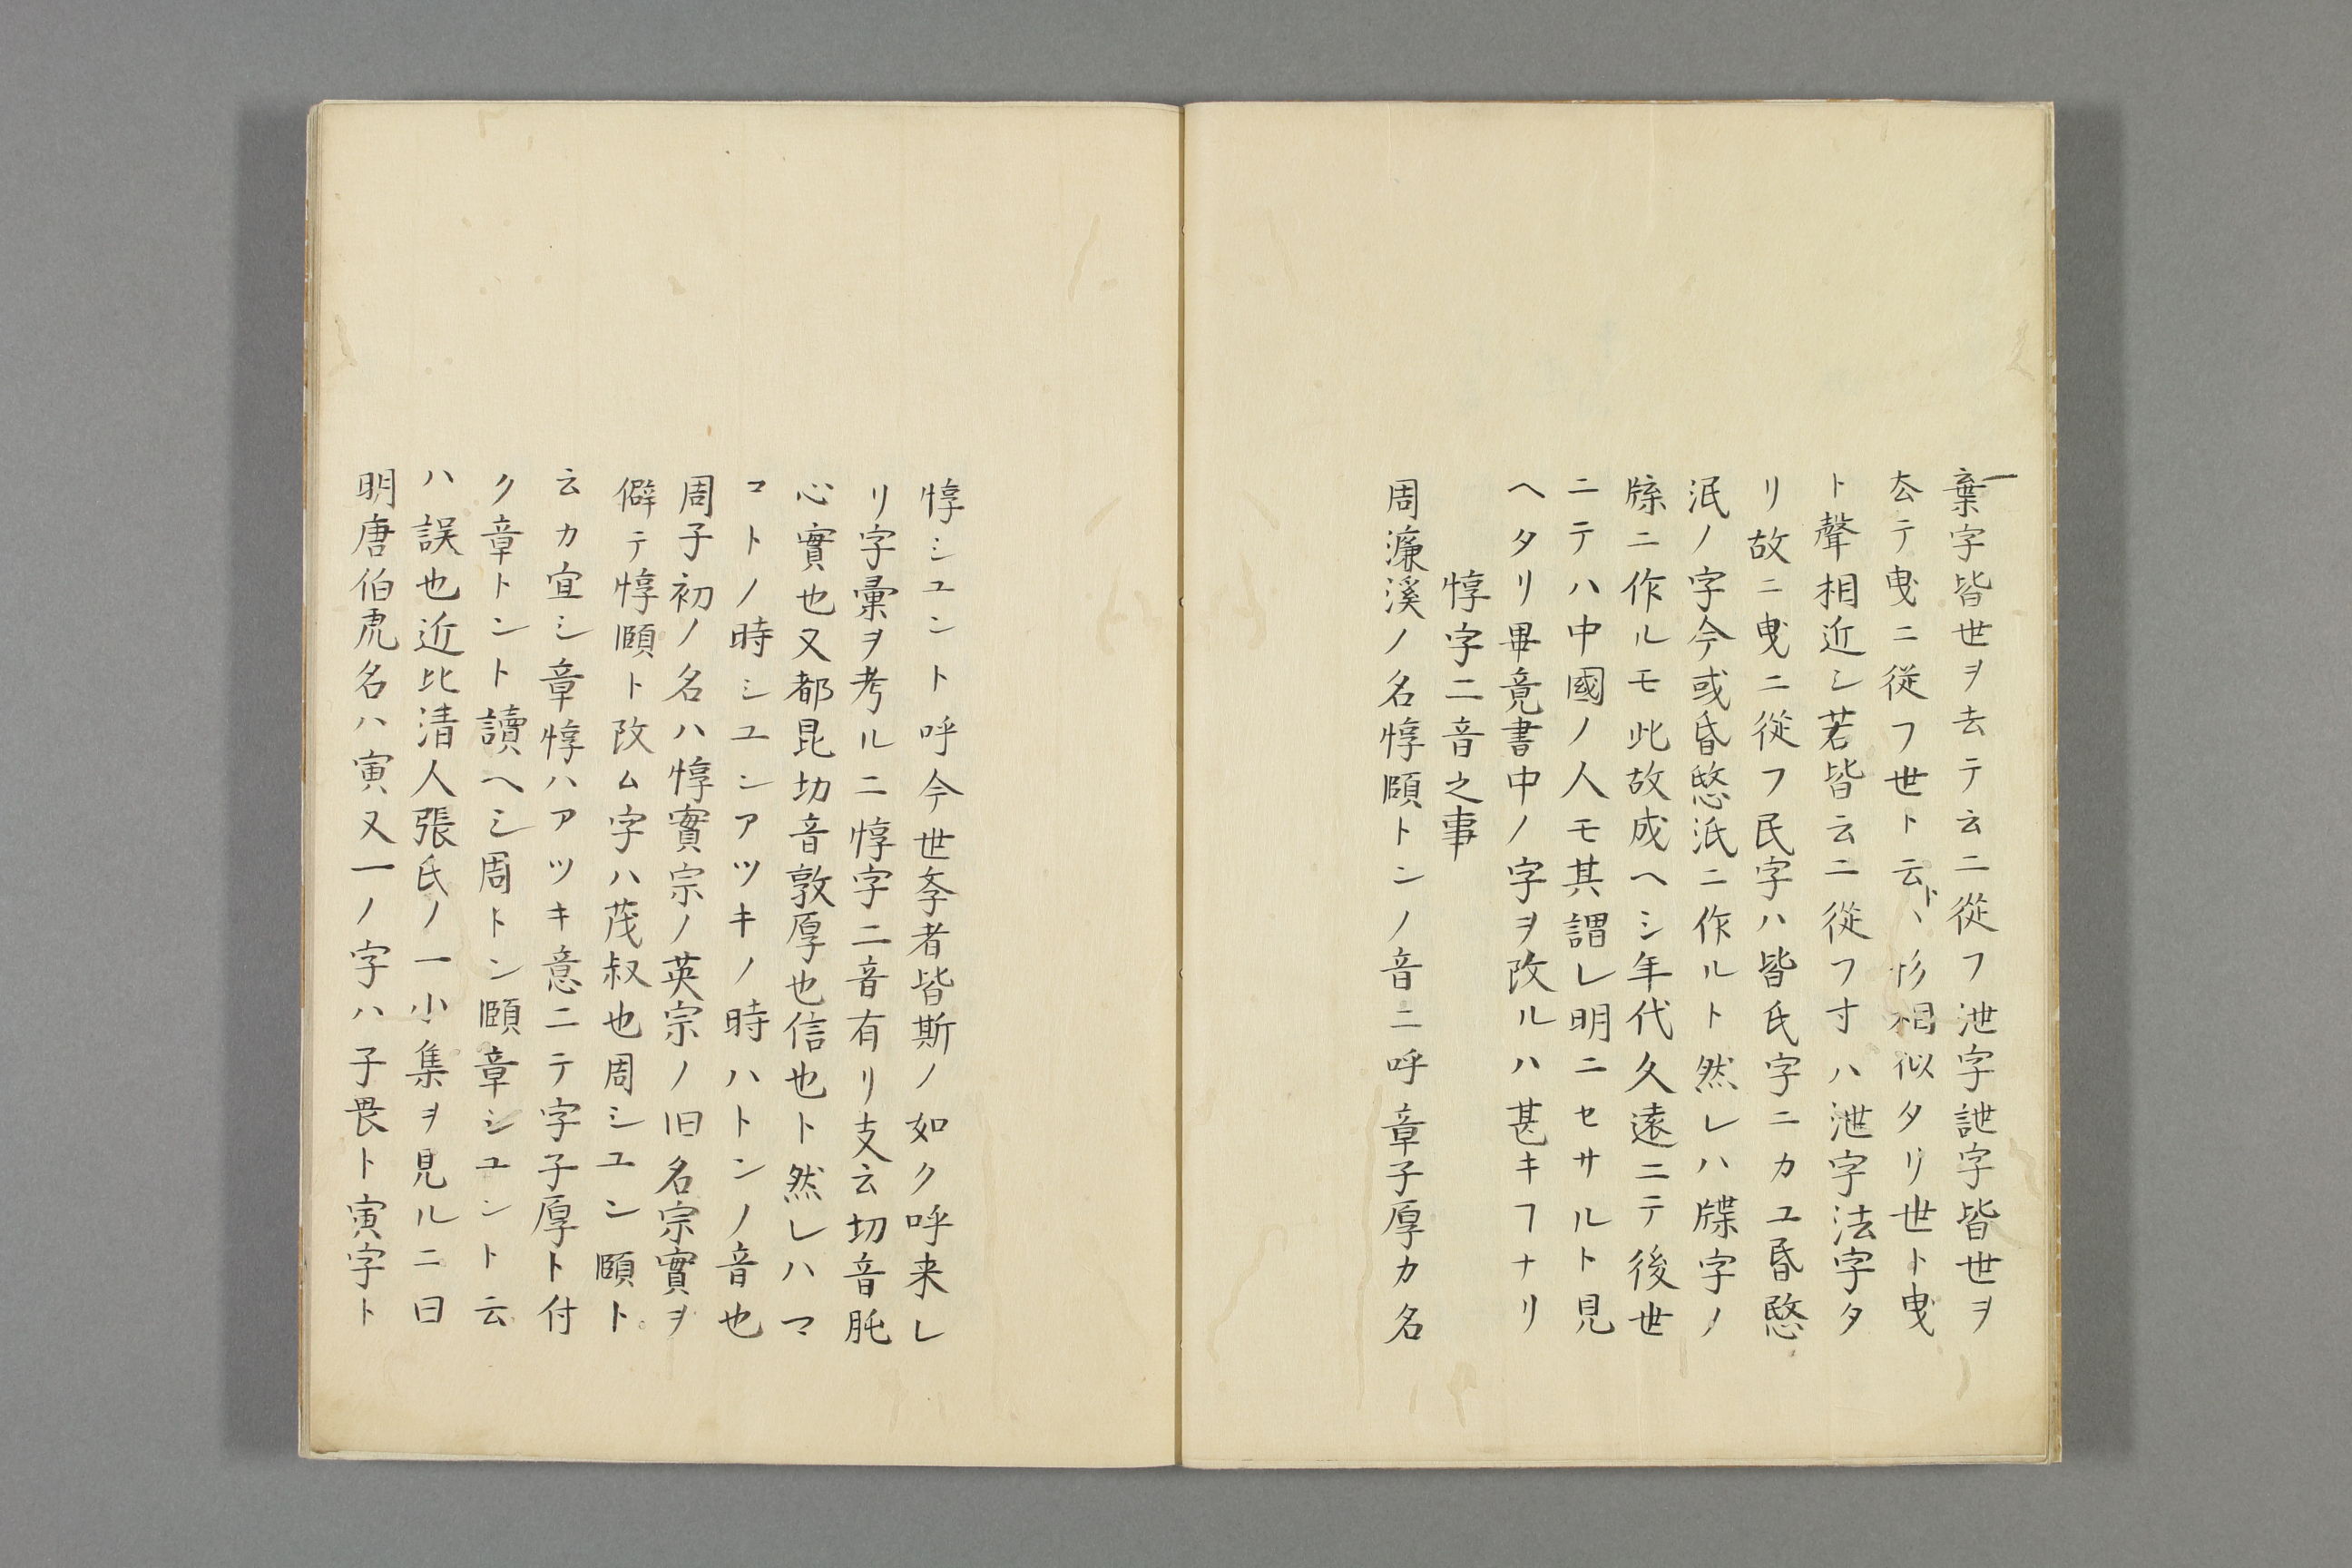 棄字皆世ヲ去テ云ニ從フ泄字詍字皆世ヲ
厺テ曳ニ従フ世ト云ト丶形相似タリ世ト曳
ト聲相近シ若皆云ニ從フ寸ハ泄字法字タ
リ故ニ曳ニ從フ民字ハ皆氏字ニカユ昏愍
泯ノ字今或昏愍泜ニ作ルト然レハ牒字ノ
牃ニ作ルモ此故成ヘシ年代久遠ニテ後世
ニテハ中國ノ人モ其謂レ明ニセサルト見
ヘタリ畢竟書中ノ字ヲ改ルハ甚キヿナリ
惇字二音之事
周濂溪ノ名惇頤トンノ音ニ呼章子厚カ名
惇シユント呼今世斈者皆斯ノ如ク呼来レ
リ字彙ヲ考ルニ惇字二音有リ支云切音肫
心實也又都昆切音敦厚也信也ト然レハマ
コトノ時シユンアツキノ時ハトンノ音也
周子初ノ名ハ惇實宗ノ英宗ノ旧名宗實ヲ
僻テ惇頤ト改ム字ハ茂叔也周シユン頤ト
云カ宜シ章惇ハアツキ意ニテ字子厚ト付
ク章トント讀ヘシ周トン頤章シユント云
ハ誤也近比清人張氏ノ一小集ヲ見ルニ曰
明唐伯虎名ハ寅又一ノ字ハ子畏ト寅字ト